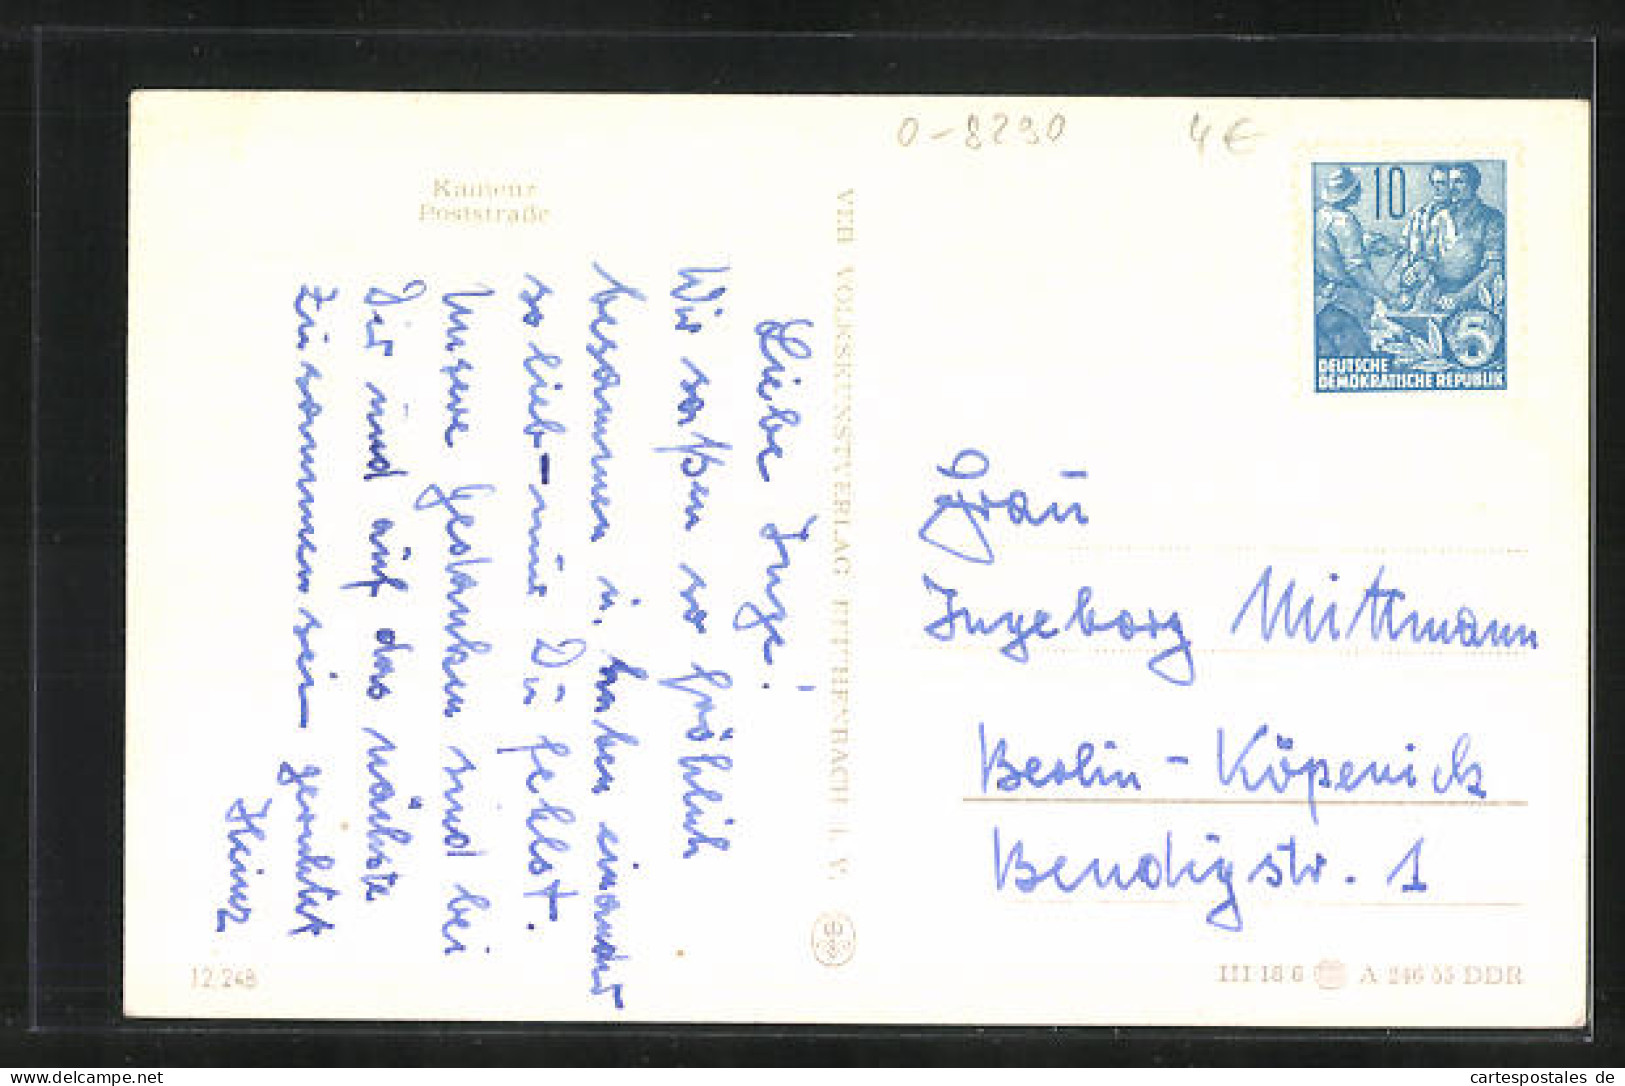 Kamenz
Poststraße
Liebe Inge!
Wir saßen so fröhlich
besammen u. haben einander
so lieb – nur Du fehlst.
Unsere Gedanken sind bei
Dir und auf das nächste
Zusammensein gerichtet
Heinz
12/248
VEB VOLKSKUNSTVERLAG REICHENBACH I. V.
0-8290 4€
10
5
DEUTSCHE
DEMOKRATISCHE REPUBLIK
Frau
Ingeborg Mittmann
Berlin - Köpenick
Bendigstr. 1
III 18 6 A 246 55 DDR
delcampe.net
cartespostales de